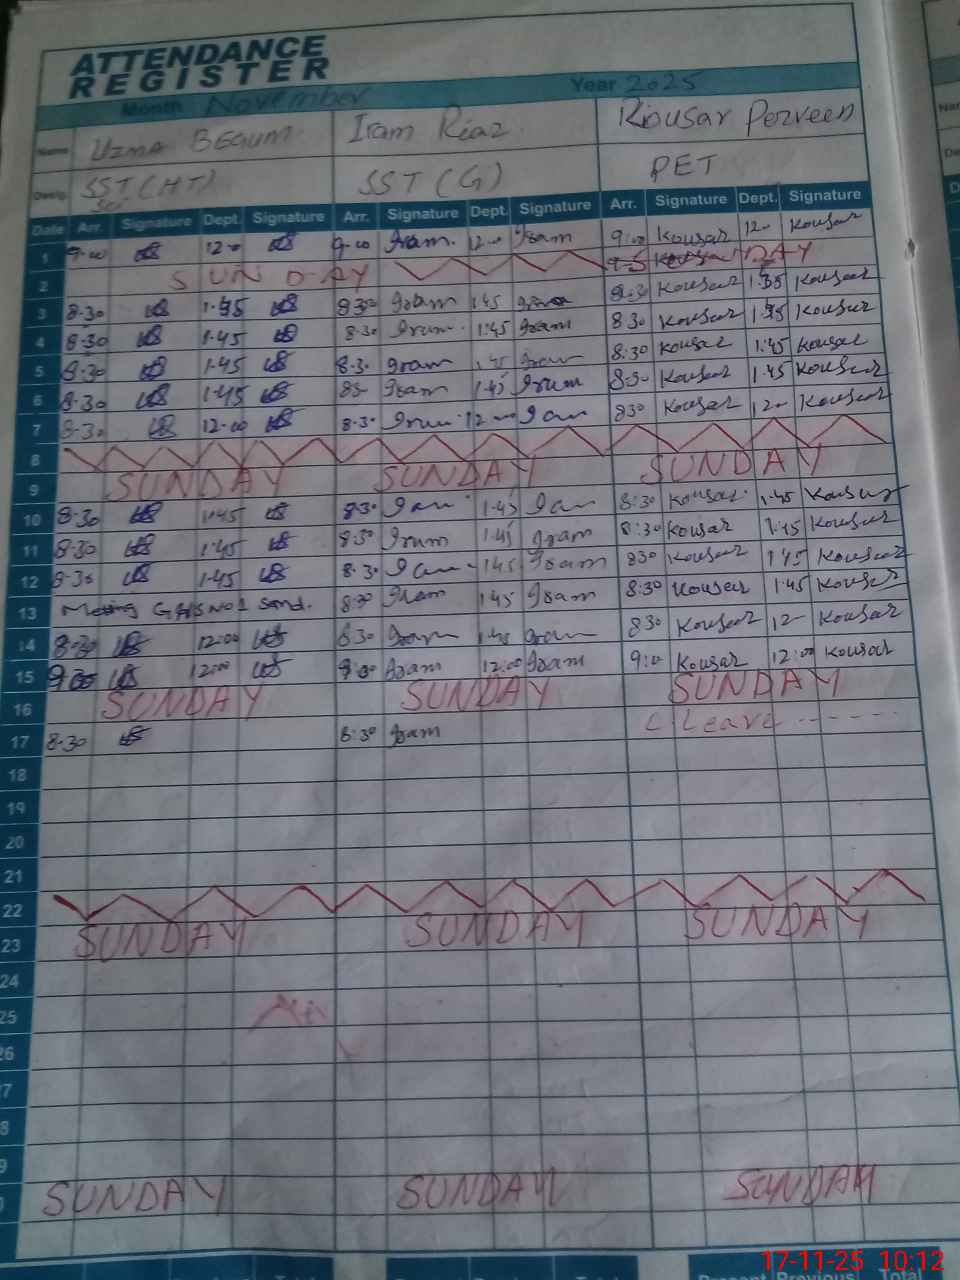 ATTENDANCE
REGISTER
Month November Year 2025
Name Uzma Begum Iram Riaz Kousar Perveen
Desig. SST (HT) SST (G) PET
Sci
Date Arr. Signature Dept. Signature Arr. Signature Dept. Signature Arr. Signature Dept. Signature
1 9-00 12-0 9-00 Iram 12-00 Iram 9:00 Kousar 12- Kousar
2 SUNDAY DAY
3 8-30 1-45 8 30 Iram 1.45 8:30 Kousar 1.35 Kousar
4 8-30 1-45 8-30 Iram 1:45 Iram 8 30 Kousar 1.45 Kousar
5 8-30 1-45 8-30 Iram 1.45 Iram 8:30 Kousar 1:45 Kousar
6 8-30 1-45 830 Iram 1.45 Iram 8-30 Kousar 1.45 Kousar
7 8-30 12-00 8-30 Iram 12-00 Iram 830 Kousar 12- Kousar
8
9 SUNDAY SUNDAY SUNDAY
10 8-30 1-45 8-30 Iram 1.45 Iram 8:30 Kousar 1.45 Kousar
11 8-30 1-45 8-30 Iram 1.45 Iram 8:30 Kousar 1.45 Kousar
12 8-30 1-45 8-30 Iram 1.45 Iram 830 Kousar 1.45 Kousar
13 Meeting No 1 8:30 Iram 1.45 Iram 8:30 Kousar 1.45 Kousar
14 8-30 12:00 8 30 Iram 1.45 Iram 830 Kousar 12- Kousar
15 9:00 12:00 9:00 Iram 12:00 Iram 9:0 Kousar 12:00 Kousar
16 SUNDAY SUNDAY SUNDAY
17 8-30 8:30 Iram C Leave ------
18
19
20
21
22
23 SUNDAY SUNDAY SUNDAY
24
25
26
7
8
9
0 SUNDAY SUNDAY SUNDAY
17-11-25 10:12